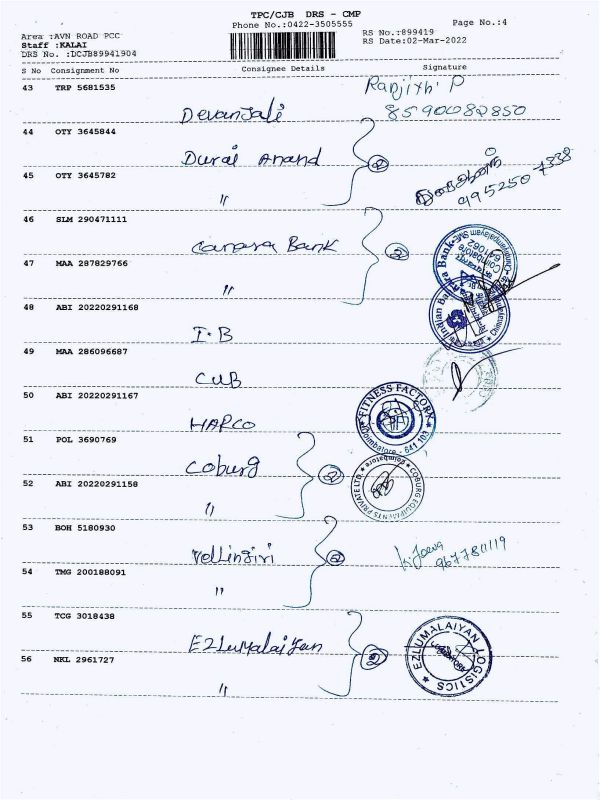 TPC/CJB DRS - CMP
Phone No.:0422-3505555
Page No.:4
Area :AVN ROAD PCC
RS No.:899419
Staff :KALAI
RS Date:02-Mar-2022
DRS No. :DCJB89941904
S No Consignment No Consignee Details Signature
43 TRP 5681535
Ranjith P
Devanjali 8590082850
44 OTY 3645844
Durai Anand 2
45 OTY 3645782
〃
995250 7338
46 SLM 290471111
Canara Bank 2
47 MAA 287829766
〃
48 ABI 20220291168
I.B
49 MAA 286096687
CUB
50 ABI 20220291167
HAPCO
FITNESS FACTORY
Coimbatore - 641 103
51 POL 3690769
Coburg 2
COBURG EQUIPMENTS PRIVATE LTD.
Coimbatore
52 ABI 20220291158
〃
53 BOH 5180930
Vellingiri 2
967780119
54 TMG 200188091
〃
55 TCG 3018438
Ezlumalaiyan 2
EZLUMALAIYAN LOGISTICS
56 NKL 2961727
〃